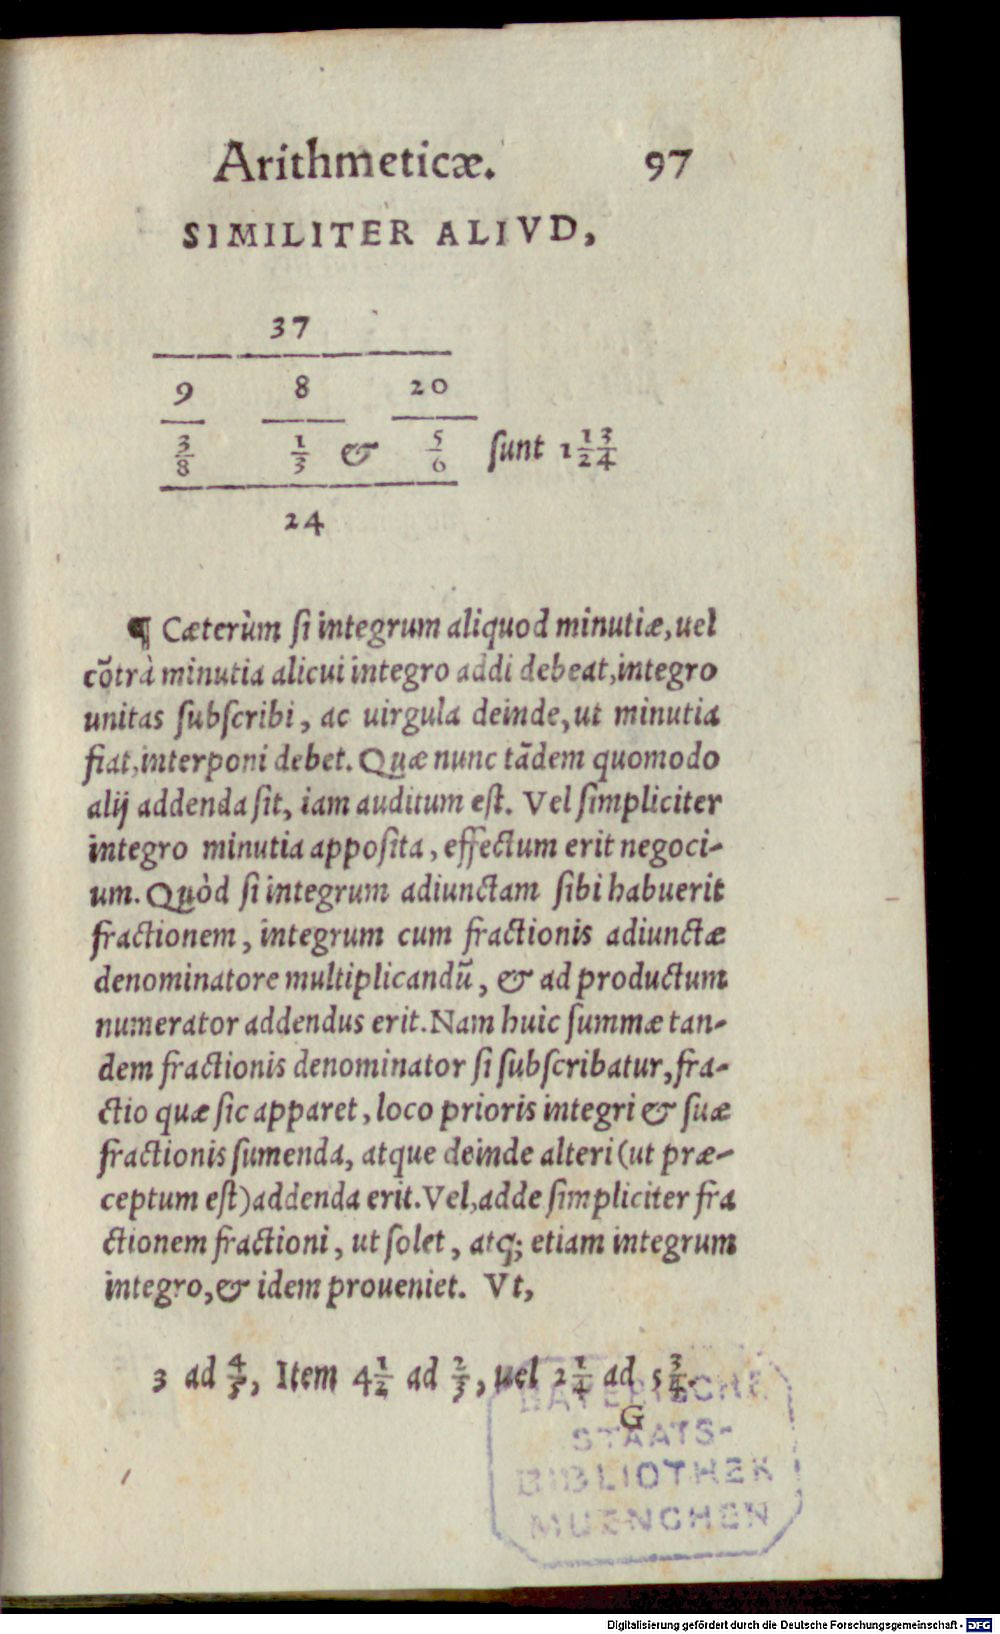 Arithmeticæ. 97
SIMILITER ALIVD,
37
9 8 20
3/8 1/3 & 5/6 ſunt 1 13/24
24
¶ Cæterùm ſi integrum aliquod minutiæ, uel
cõtrà minutia alicui integro addi debeat, integro
unitas ſubſcribi, ac uirgula deinde, ut minutia
fiat, interponi debet. Quæ nunc tãdem quomodo
alij addenda ſit, iam auditum eſt. Vel ſimpliciter
integro minutia appoſita, effectum erit negoci-
um. Quòd ſi integrum adiunctam ſibi habuerit
fractionem, integrum cum fractionis adiunctæ
denominatore multiplicandũ, & ad productum
numerator addendus erit. Nam huic ſummæ tan-
dem fractionis denominator ſi ſubſcribatur, fra-
ctio quæ ſic apparet, loco prioris integri & ſuæ
fractionis ſumenda, atque deinde alteri (ut præ-
ceptum eſt) addenda erit. Vel, adde ſimpliciter fra
ctionem fractioni, ut ſolet, atq; etiam integrum
integro, & idem proueniet. Vt,
3 ad 4/5, Item 4 1/2 ad 2/3, uel 2 1/4 ad 5 3/4.
G
BAYERISCHE
STAATS-
BIBLIOTHEK
MUENCHEN
Digitalisierung gefördert durch die Deutsche Forschungsgemeinschaft - DFG